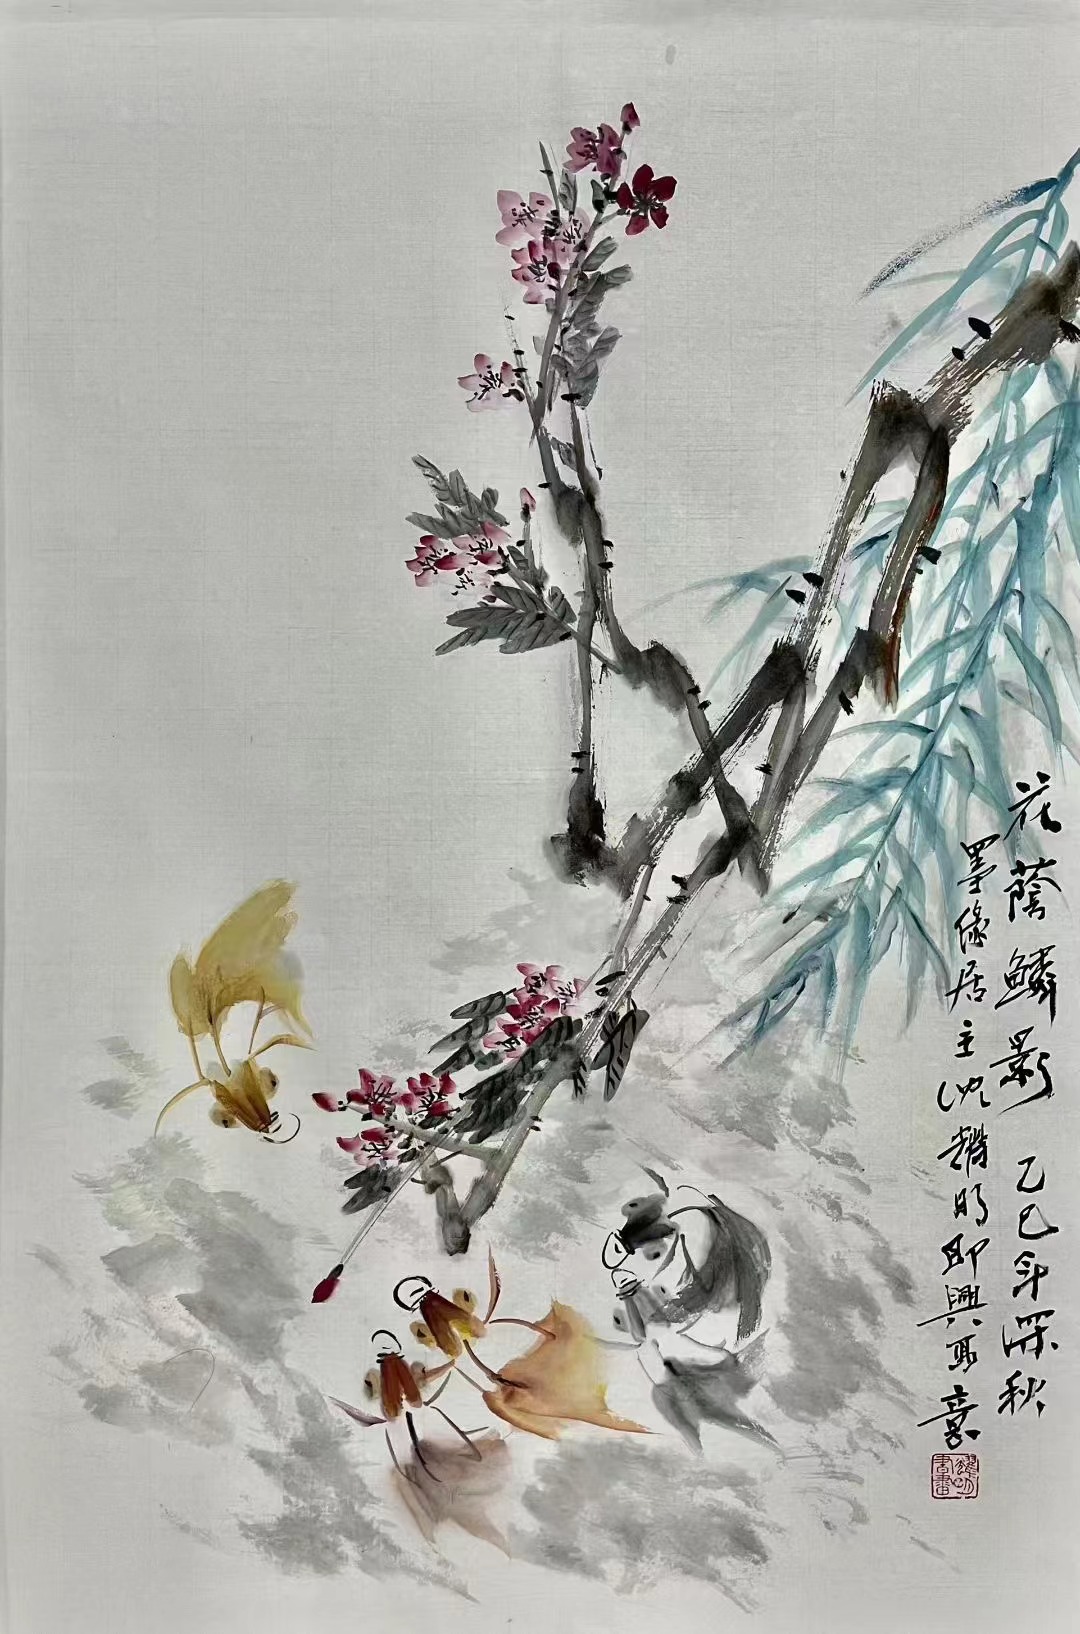 花蔭鱗影 乙巳年深秋
墨緣居主沈耀明即興意
耀明書畫